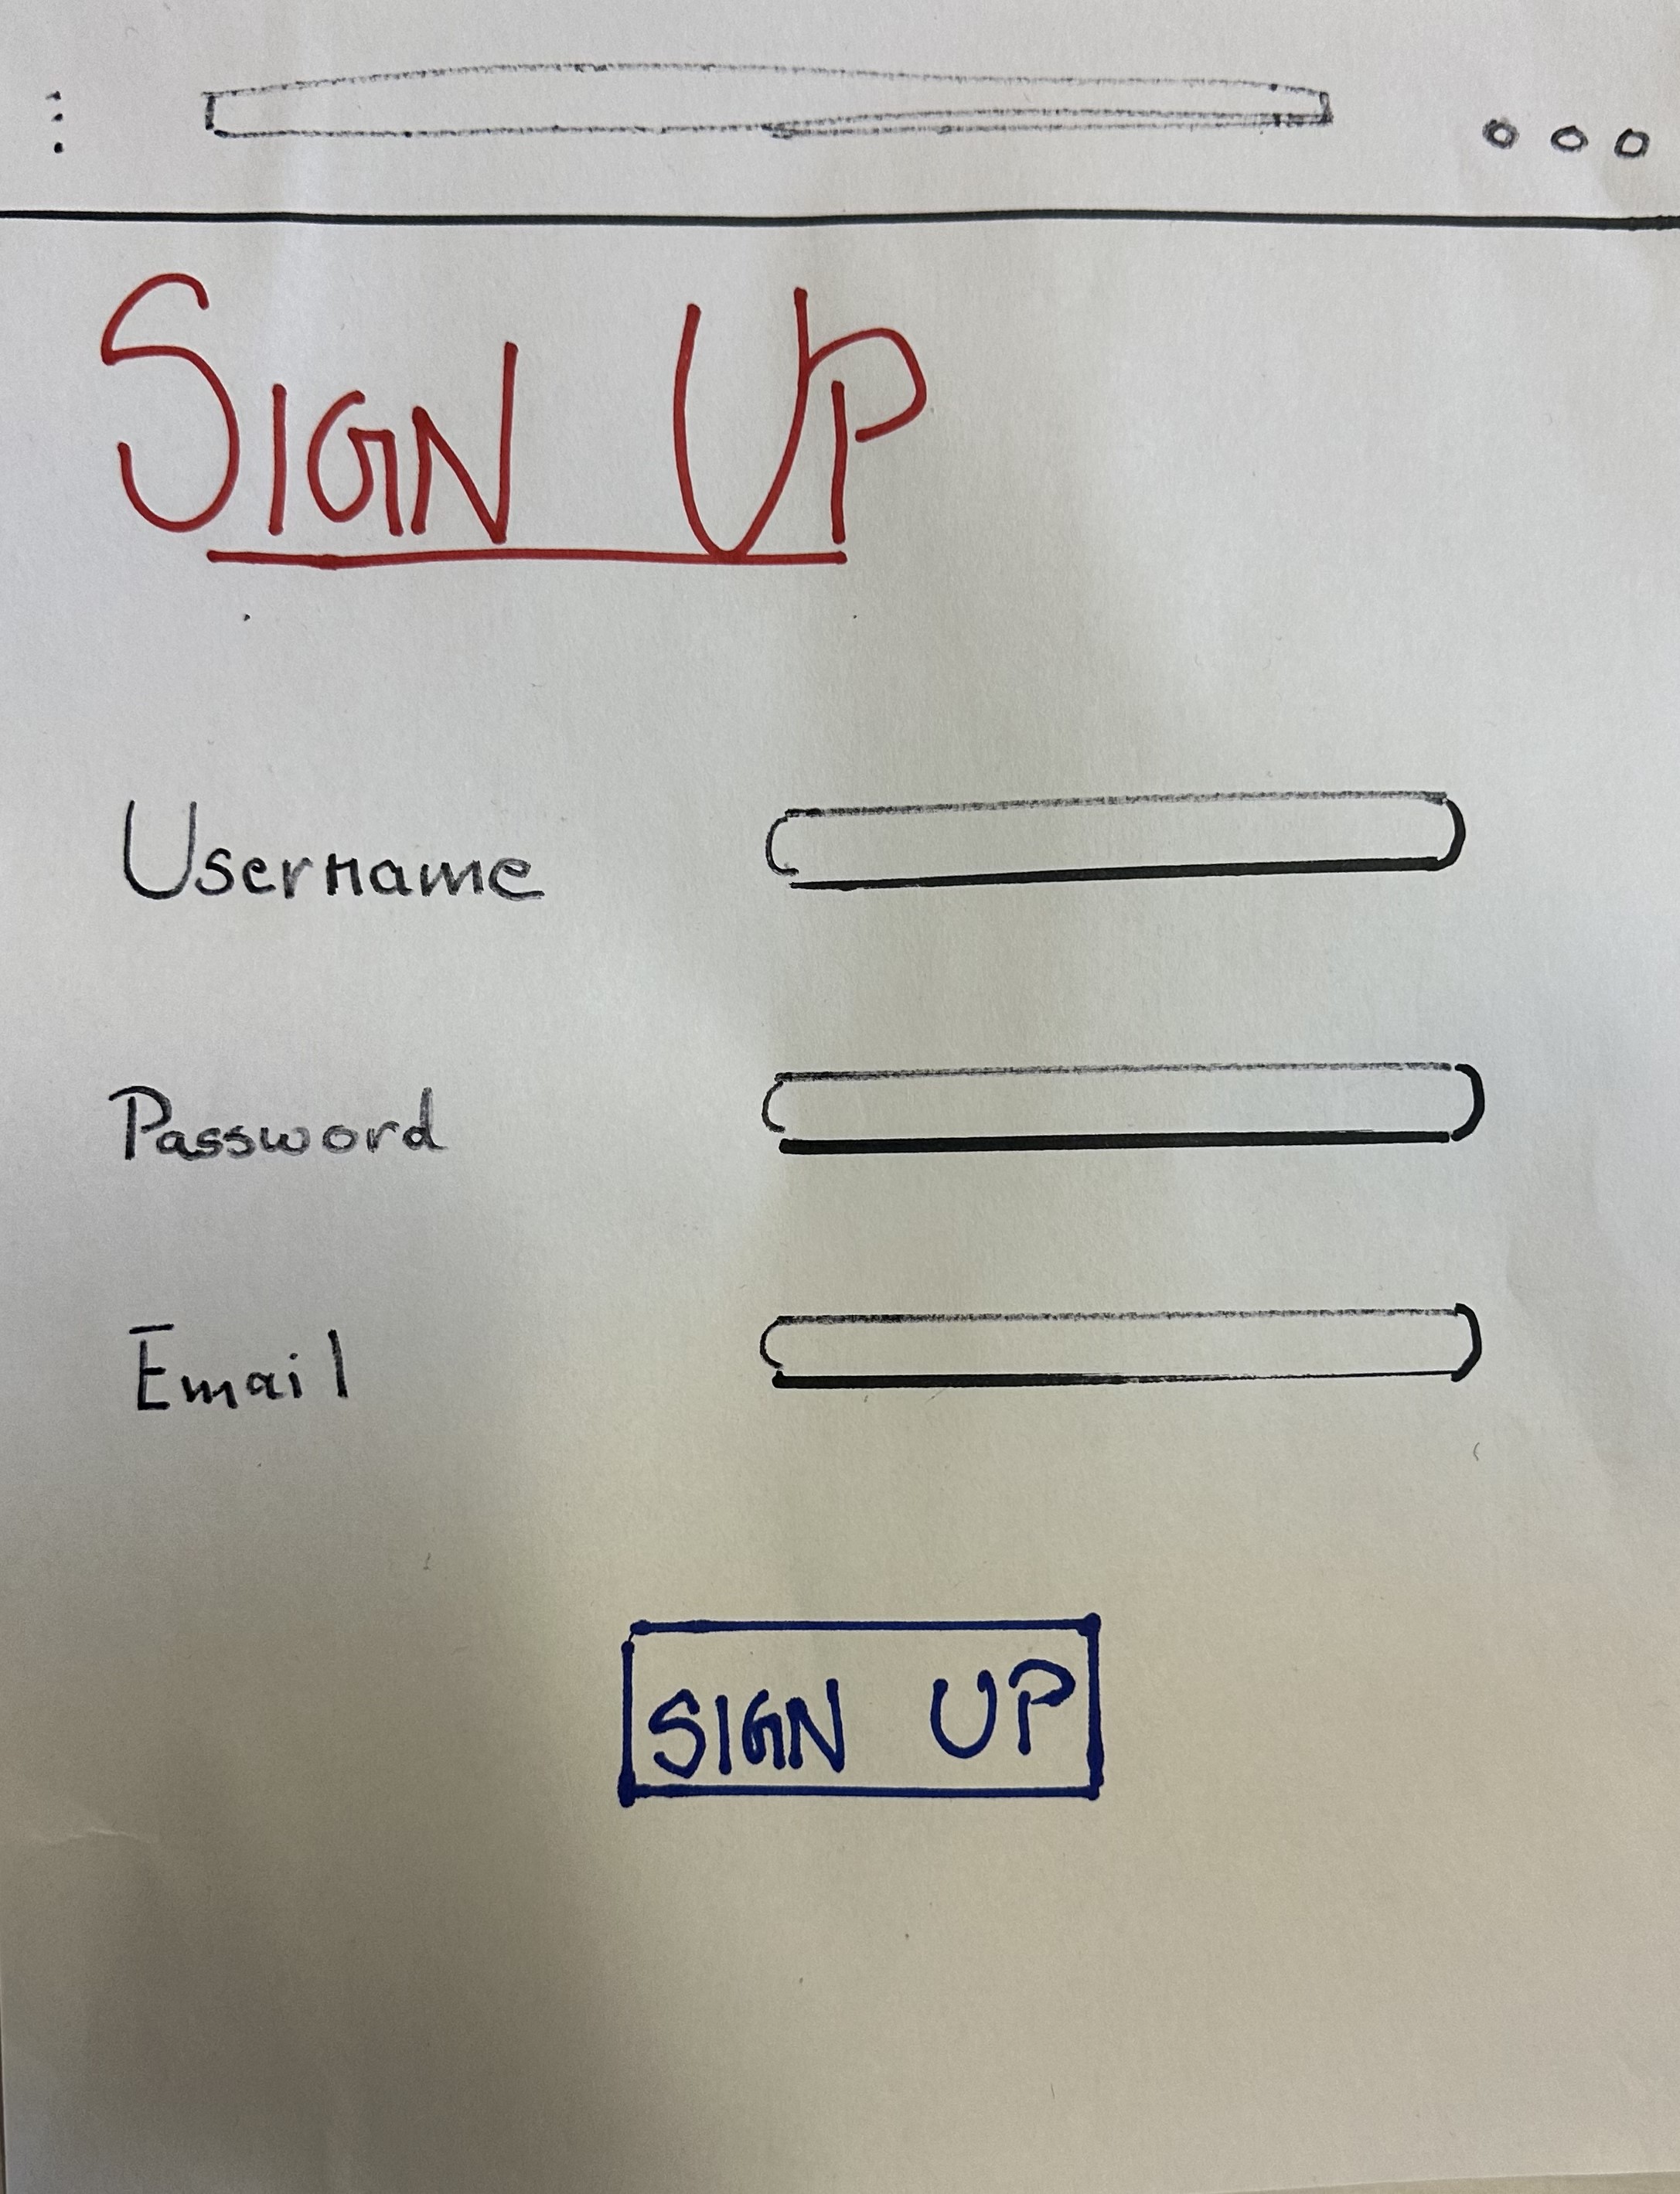 SIGN UP
Username
Password
Email
SIGN UP